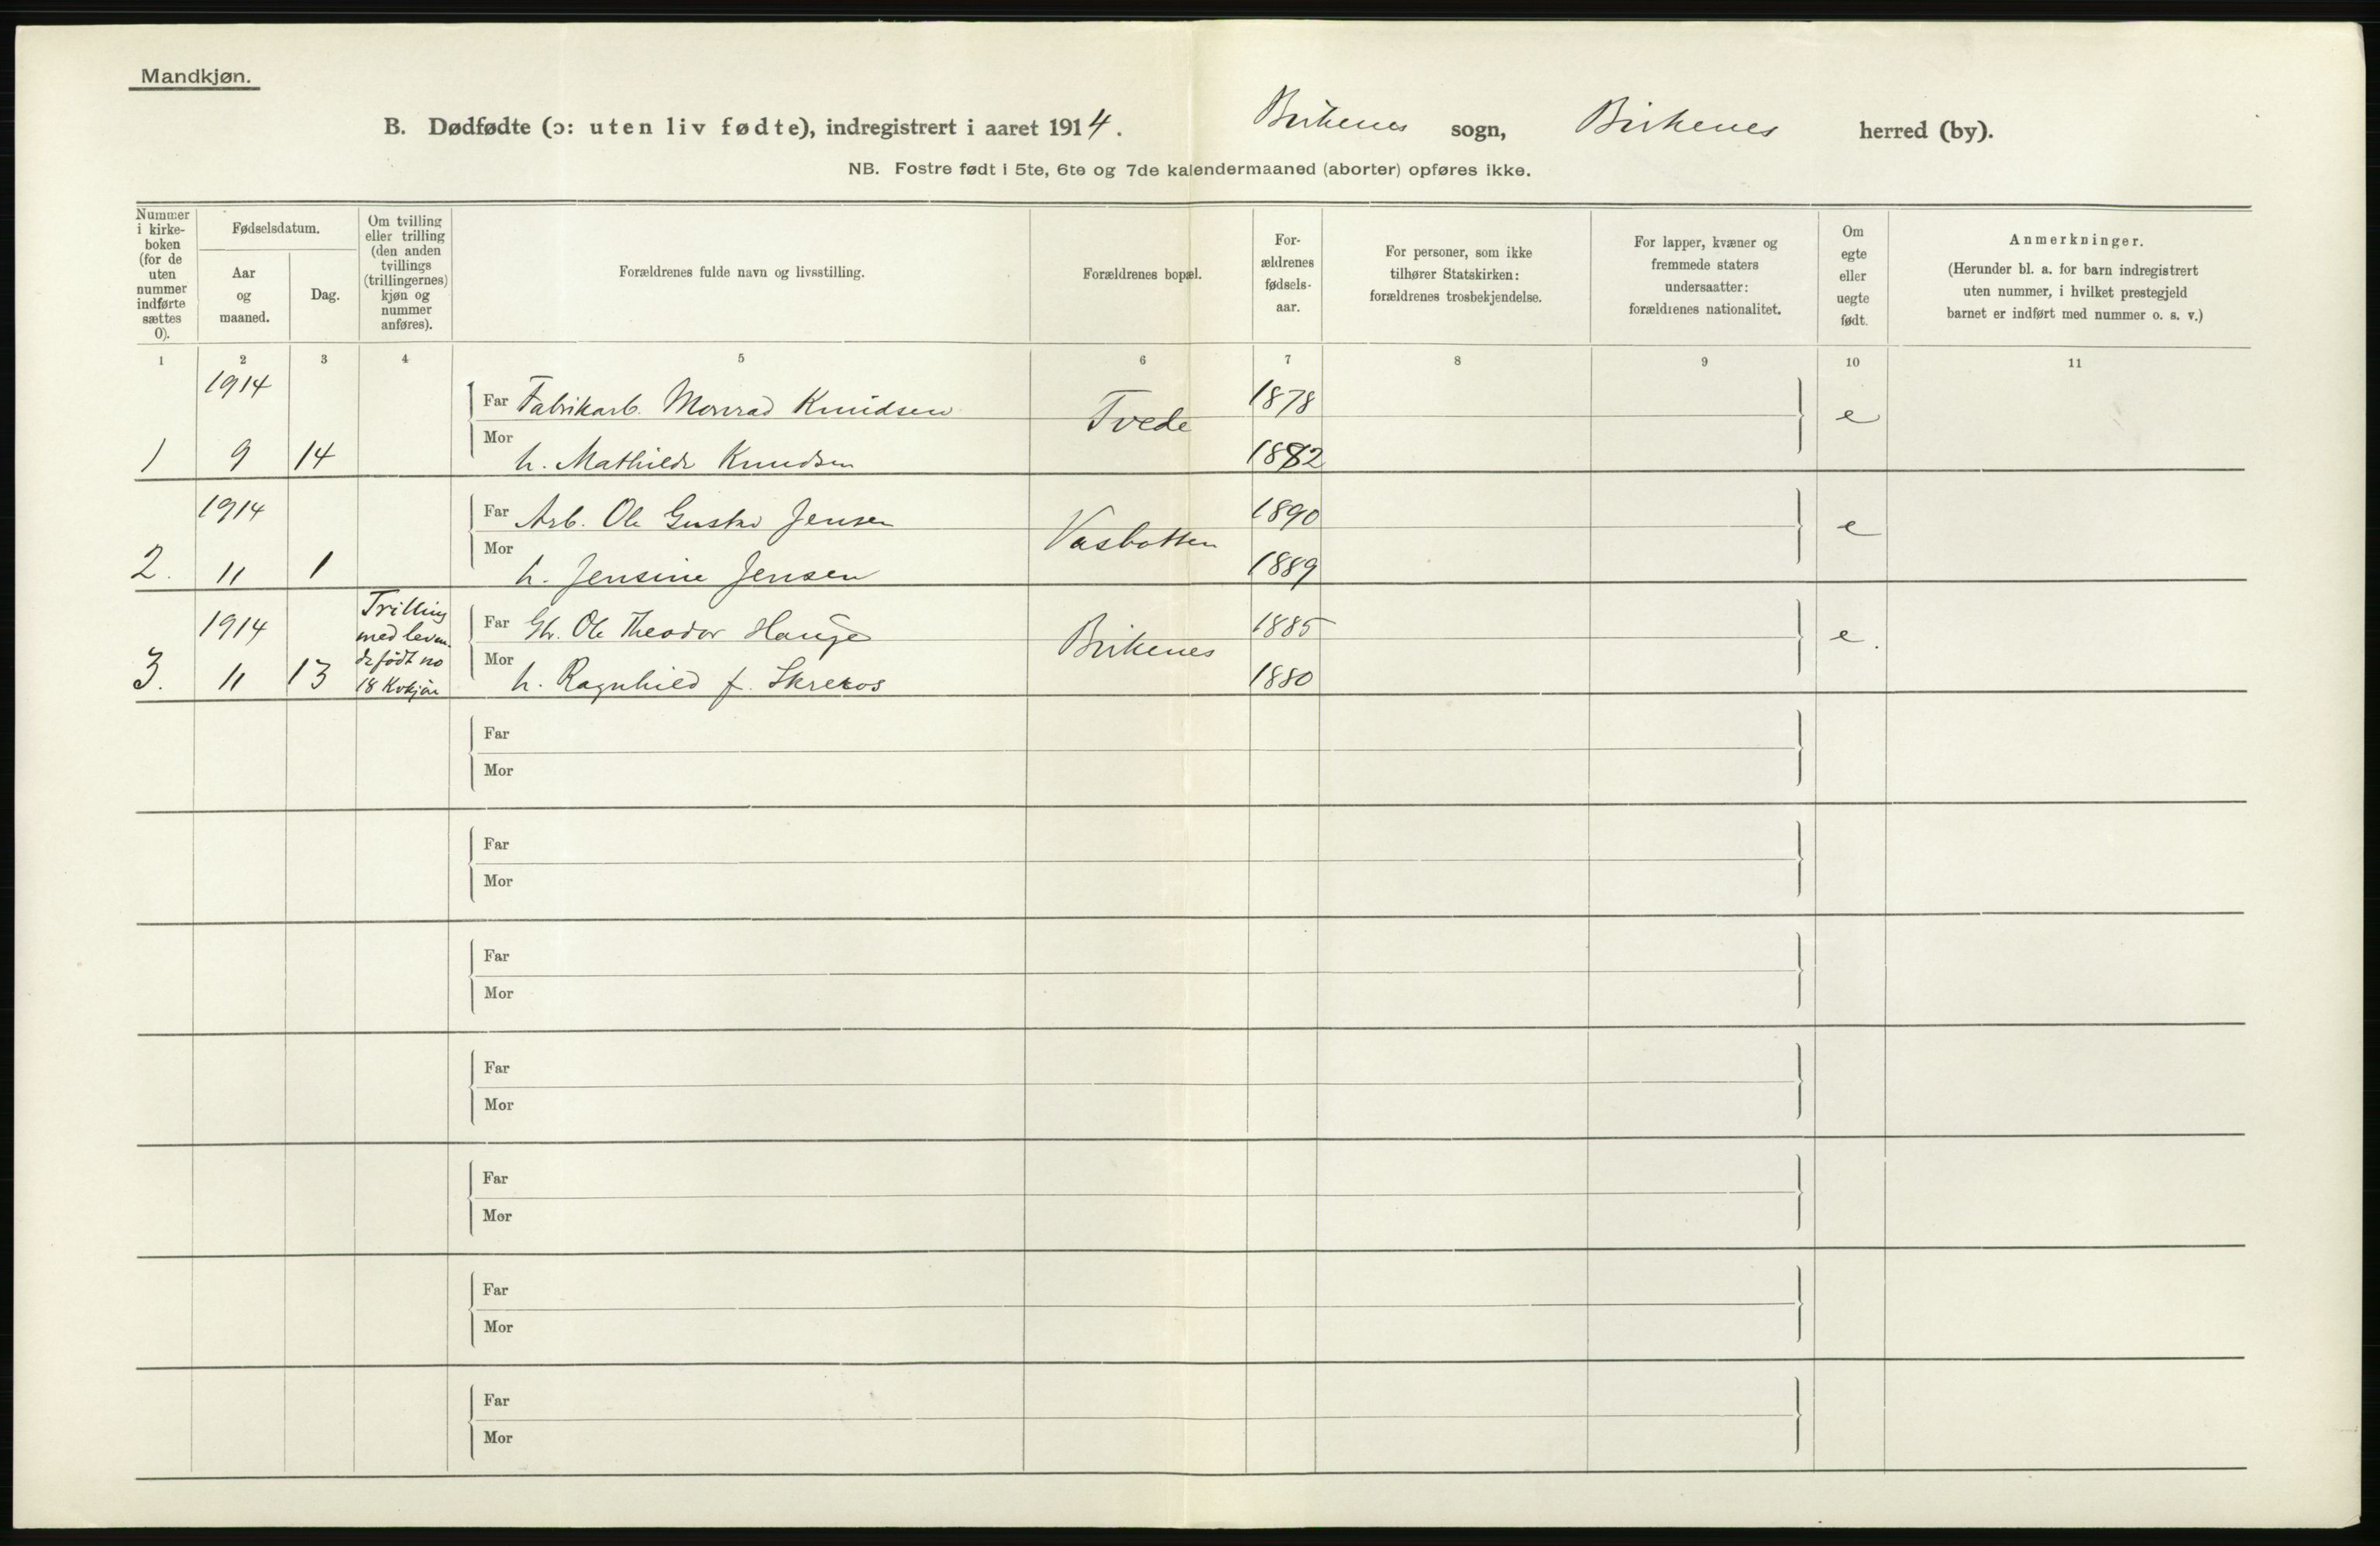 Mandkjøn.
B. Dødfødte (ɔ: uten liv fødte), indregistrert i aaret 1914. Birkenes sogn, Birkenes herred (by).
NB. Fostre født i 5te, 6te og 7de kalendermaaned (aborter) opføres ikke.
Nummer
i kirke-
boken
(for de
uten
nummer
indførte
sættes
0).
Fødselsdatum.
Aar
og
maaned.
Dag.
Om tvilling
eller trilling
(den anden
tvillings
(trillingernes)
kjøn og
nummer
anføres).
Forældrenes fulde navn og livsstilling.
Forældrenes bopæl.
For-
ældrenes
fødsels-
aar.
For personer, som ikke
tilhører Statskirken:
forældrenes trosbekjendelse.
For lapper, kvæner og
fremmede staters
undersaatter:
forældrenes nationalitet.
Om
egte
eller
uegte
født.
Anmerkninger.
(Herunder bl. a. for barn indregistrert
uten nummer, i hvilket prestegjeld
barnet er indført med nummer o. s. v.)
1 2 3 4 5 6 7 8 9 10 11
1914
Far Fabrikarb. Monrad Knudsen Tvede 1878 e
1 9 14 Mor h. Mathilde Knudsen 1882
1914
Far Arb. Ole Gustav Jensen Vasbotten 1890 e
2. 11 1 Mor h. Jensine Jensen 1889
1914
Trilling
med leven
de født no
18 Kvkjøn
Far Gbr. Ole Theodor Hauge Birkenes 1885 e.
3. 11 13 Mor h. Ragnhild f. Skreros 1880
Far
Mor
Far
Mor
Far
Mor
Far
Mor
Far
Mor
Far
Mor
Far
Mor